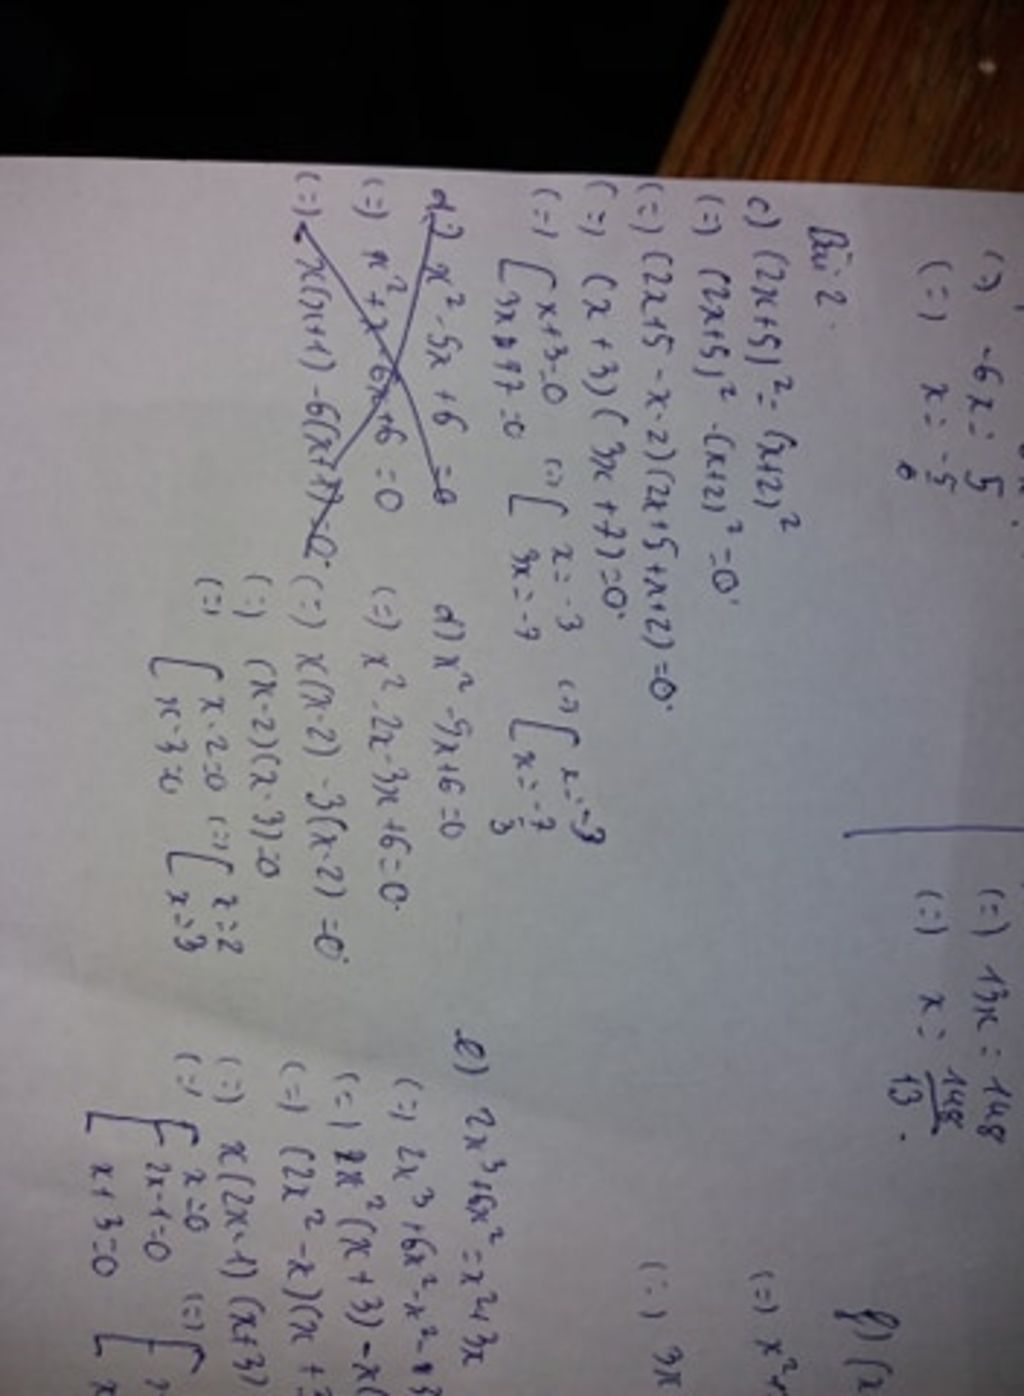 (=) -6x = 5
(=) x = -5/6
(=) 13x = 148
(=) x = 148/13.
Bài 2.
c) (2x+5)² = (x+2)²
(=) (2x+5)² - (x+2)² = 0.
(=) (2x+5 - x - 2)(2x+5+x+2) = 0.
(=) (x+3)(3x+7) = 0.
(=) [ x+3=0 (=) [ x = -3 (=) [ x = -3
3x+7=0 3x = -7 x = -7/3
d) x² - 5x + 6 = 0
(=) x² + x - 6x + 6 = 0
(=) x(x+1) - 6(x+1) = 0.
d) x² - 5x + 6 = 0
(=) x² - 2x - 3x + 6 = 0.
(=) x(x-2) - 3(x-2) = 0.
(=) (x-2)(x-3) = 0
(=) [ x-2=0 (=) [ x = 2
x-3=0 x = 3
e) 2x³ + 6x² = x² + 3x
(=) 2x³ + 6x² - x² - 3
(=) 2x²(x+3) - x(
(=) (2x² - x)(x +
(=) x(2x-1)(x+3)
(=) [ x=0 (=) [
2x-1=0
x+3=0 x
f) (x
(=) x² +
(=) 3x